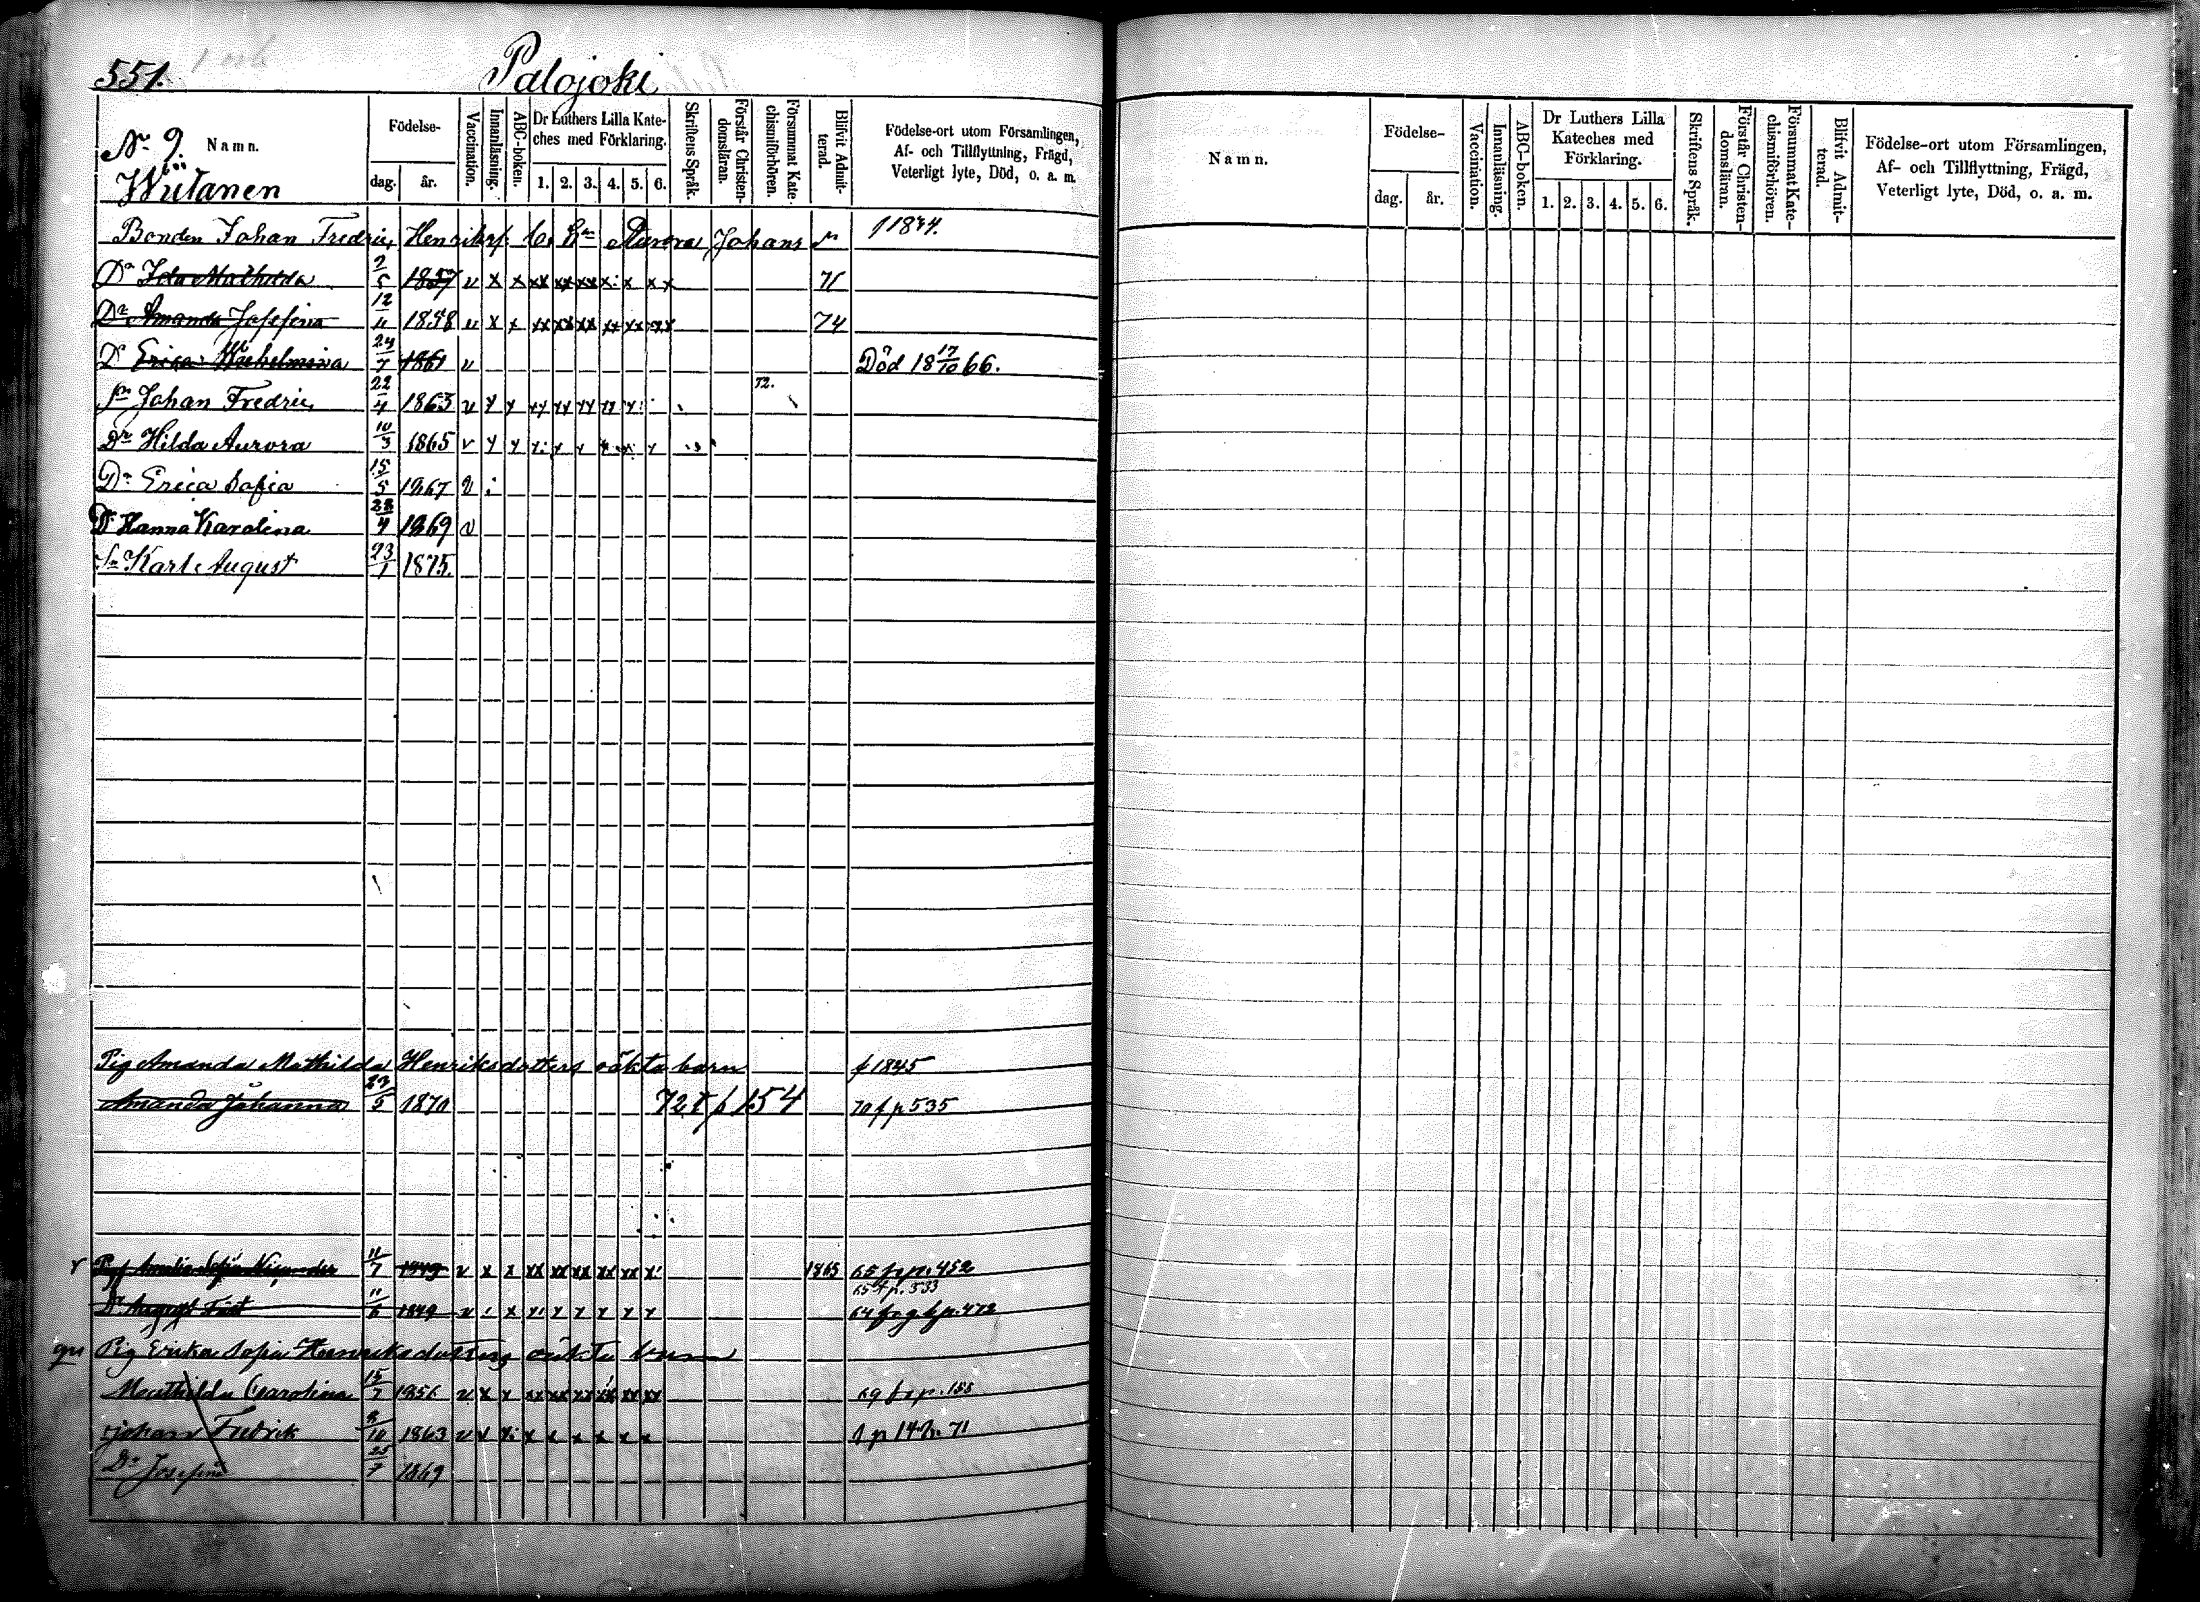 551.
Palojoki
No 9
Wiitanen
Namn.
Födelse-
dag.
år.
Vaccination.
Innanläsning.
ABC-boken.
Dr Luthers Lilla Kateches med Förklaring.
1. 2. 3. 4. 5. 6.
Skriftens Språk.
Förstår Christendomsläran.
Försummat Katechismiförhören.
Blifvit Admitterad.
Födelse-ort utom Församlingen, Af- och Tillflyttning, Frägd, Veterligt lyte, Död, o. a. m.
Bonden Johan Fredric Henrikss. o. h. Aurora Johans
Dr Ida Mathilda 2/5 1857 v x x xx xx xx x x xx 71
Dr Amanda Josefina 12/11 1858 v x x xx xx xx xx xx xx 74
Dr Erica Wilhelmina 24/7 1861 v Död 18 17/10 66.
Sn Johan Fredric 22/4 1863 v 72.
Dr Hilda Aurora 10/3 1865 v
Dr Erica Sofia 15/5 1867 v
Dr Hanna Karolina 28/4 1869 v
Sn Karl August 23/1 1875.
Pig Amanda Mathilda Henriksdotters oäkta barn f 1845
Amanda Johanna 23/5 1870 72 t p 154 70 f p 535
Amalia Sofia 11/7 1849 v x x xx xx xx xx xx x 1865 65 f p. 452
65 p. 533
Dr August 11/6 1849 64 p. 472
Pig Erika Sofia Henriksdotters oäkta barn
Mathilda Carolina 15/7 1856 v x x xx xx xx xx xx xx 69 p. 155
Johan Fredrik 8/10 1863 p 142. 71
Dr Josefina 25/7 1869
Namn.
Födelse-
dag.
år.
Vaccination.
Innanläsning.
ABC-boken.
Dr Luthers Lilla Kateches med Förklaring.
1. 2. 3. 4. 5. 6.
Skriftens Språk.
Förstår Christendomsläran.
Försummat Katechismiförhören.
Blifvit Admitterad.
Födelse-ort utom Församlingen, Af- och Tillflyttning, Frägd, Veterligt lyte, Död, o. a. m.